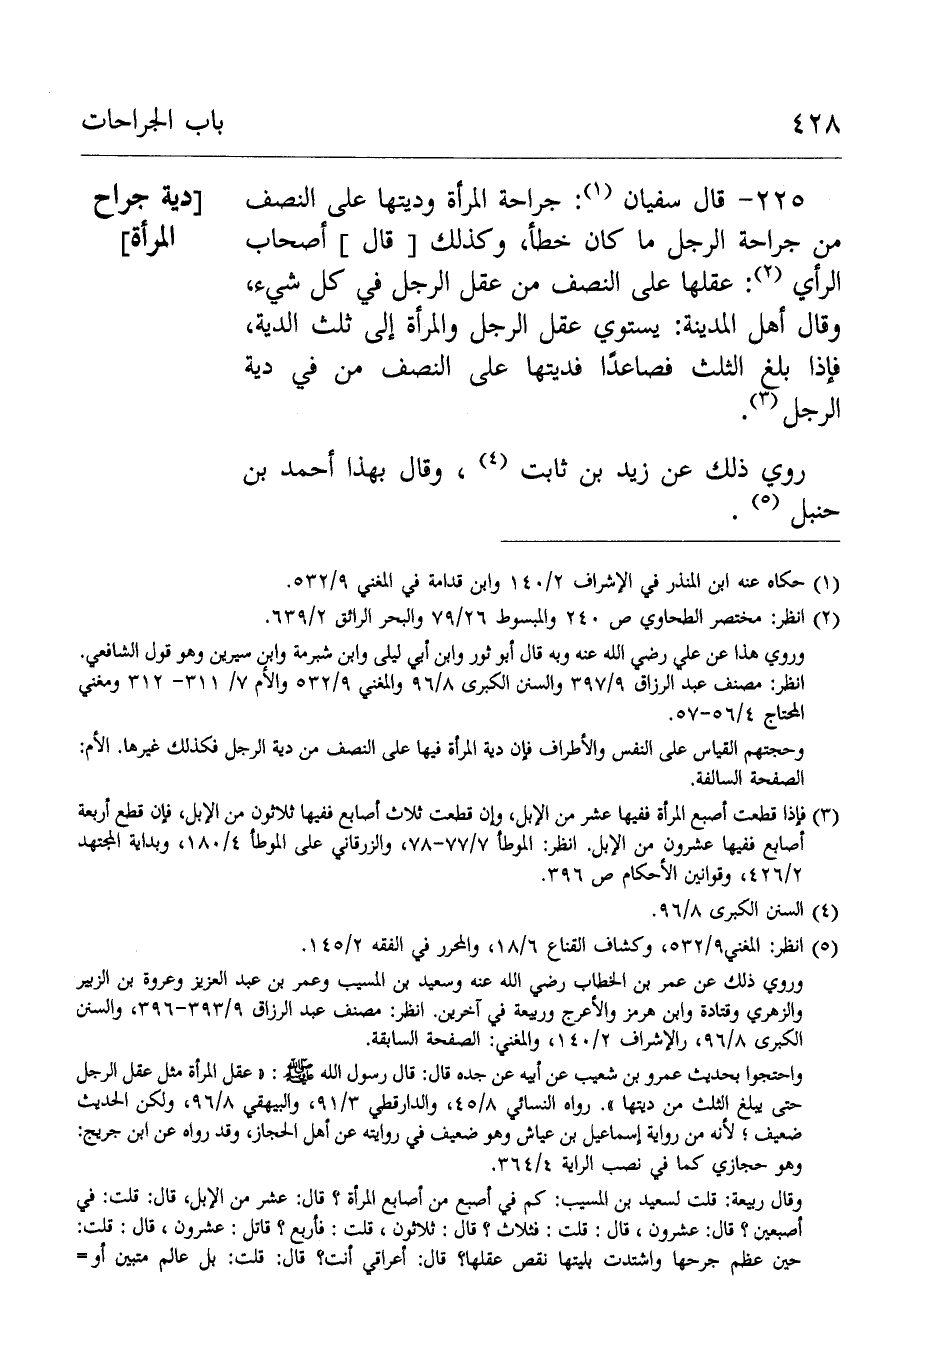 ٤٢٨
باب الجراحات
[دية جراح
المرأة]
٢٢٥- قال سفيان (١): جراحة المرأة وديتها على النصف
من جراحة الرجل ما كان خطأ، وكذلك [ قال ] أصحاب
الرأي (٢): عقلها على النصف من عقل الرجل في كل شيء،
وقال أهل المدينة: يستوي عقل الرجل والمرأة إلى ثلث الدية،
فإذا بلغ الثلث فصاعدًا فديتها على النصف من في دية
الرجل (٣).
روي ذلك عن زيد بن ثابت (٤) ، وقال بهذا أحمد بن
حنبل (٥) .
(١) حكاه عنه ابن المنذر في الإشراف ١٤٠/٢ وابن قدامة في المغني ٥٣٢/٩.
(٢) انظر: مختصر الطحاوي ص ٢٤٠ والمبسوط ٧٩/٢٦ والبحر الرائق ٦٣٩/٢.
وروي هذا عن علي رضي الله عنه وبه قال أبو ثور وابن أبي ليلى وابن شبرمة وابن سيرين وهو قول الشافعي.
انظر: مصنف عبد الرزاق ٣٩٧/٩ والسنن الكبرى ٩٦/٨ والمغني ٥٣٢/٩ والأم ٧/ ٣١١- ٣١٢ ومغني
المحتاج ٥٦/٤-٥٧.
وحجتهم القياس على النفس والأطراف فإن دية المرأة فيها على النصف من دية الرجل فكذلك غيرها. الأم:
الصفحة السالفة.
(٣) فإذا قطعت أصبع المرأة ففيها عشر من الإبل، وإن قطعت ثلاث أصابع ففيها ثلاثون من الإبل، فإن قطع أربعة
أصابع ففيها عشرون من الإبل. انظر: الموطأ ٧٧/٧-٧٨، والزرقاني على الموطأ ١٨٠/٤، وبداية المجتهد
٤٢٦/٢، وقوانين الأحكام ص ٣٩٦.
(٤) السنن الكبرى ٩٦/٨.
(٥) انظر: المغني٥٣٢/٩، وكشاف القناع ١٨/٦، والمحرر في الفقه ١٤٥/٢.
وروي ذلك عن عمر بن الخطاب رضي الله عنه وسعيد بن المسيب وعمر بن عبد العزيز وعروة بن الزبير
والزهري وقتادة وابن هرمز والأعرج وربيعة في آخرين. انظر: مصنف عبد الرزاق ٣٩٣/٩-٣٩٦، والسنن
الكبرى ٩٦/٨، رالإشراف ١٤٠/٢، والمغني: الصفحة السابقة.
واحتجوا بحديث عمرو بن شعيب عن أبيه عن جده قال: قال رسول الله ﷺ : « عقل المرأة مثل عقل الرجل
حتى يبلغ الثلث من ديتها ». رواه النسائي ٤٥/٨، والدارقطي ٩١/٣، والبيهقي ٩٦/٨، ولكن الحديث
ضعيف ؛ لأنه من رواية إسماعيل بن عياش وهو ضعيف في روايته عن أهل الحجاز، وقد رواه عن ابن جريج:
وهو حجازي كما في نصب الراية ٣٦٤/٤.
وقال ربيعة: قلت لسعيد بن المسيب: كم في أصبع من أصابع المرأة ؟ قال: عشر من الإبل، قال: قلت: في
أصبعين ؟ قال: عشرون ، قال : قلت : فثلاث ؟ قال : ثلاثون ، قلت : فأربع ؟ قاتل : عشرون ، قال : قلت:
حين عظم جرحها واشتدت بليتها نقص عقلها؟ قال: أعراقي أنت؟ قال: قلت: بل عالم متبين أو=